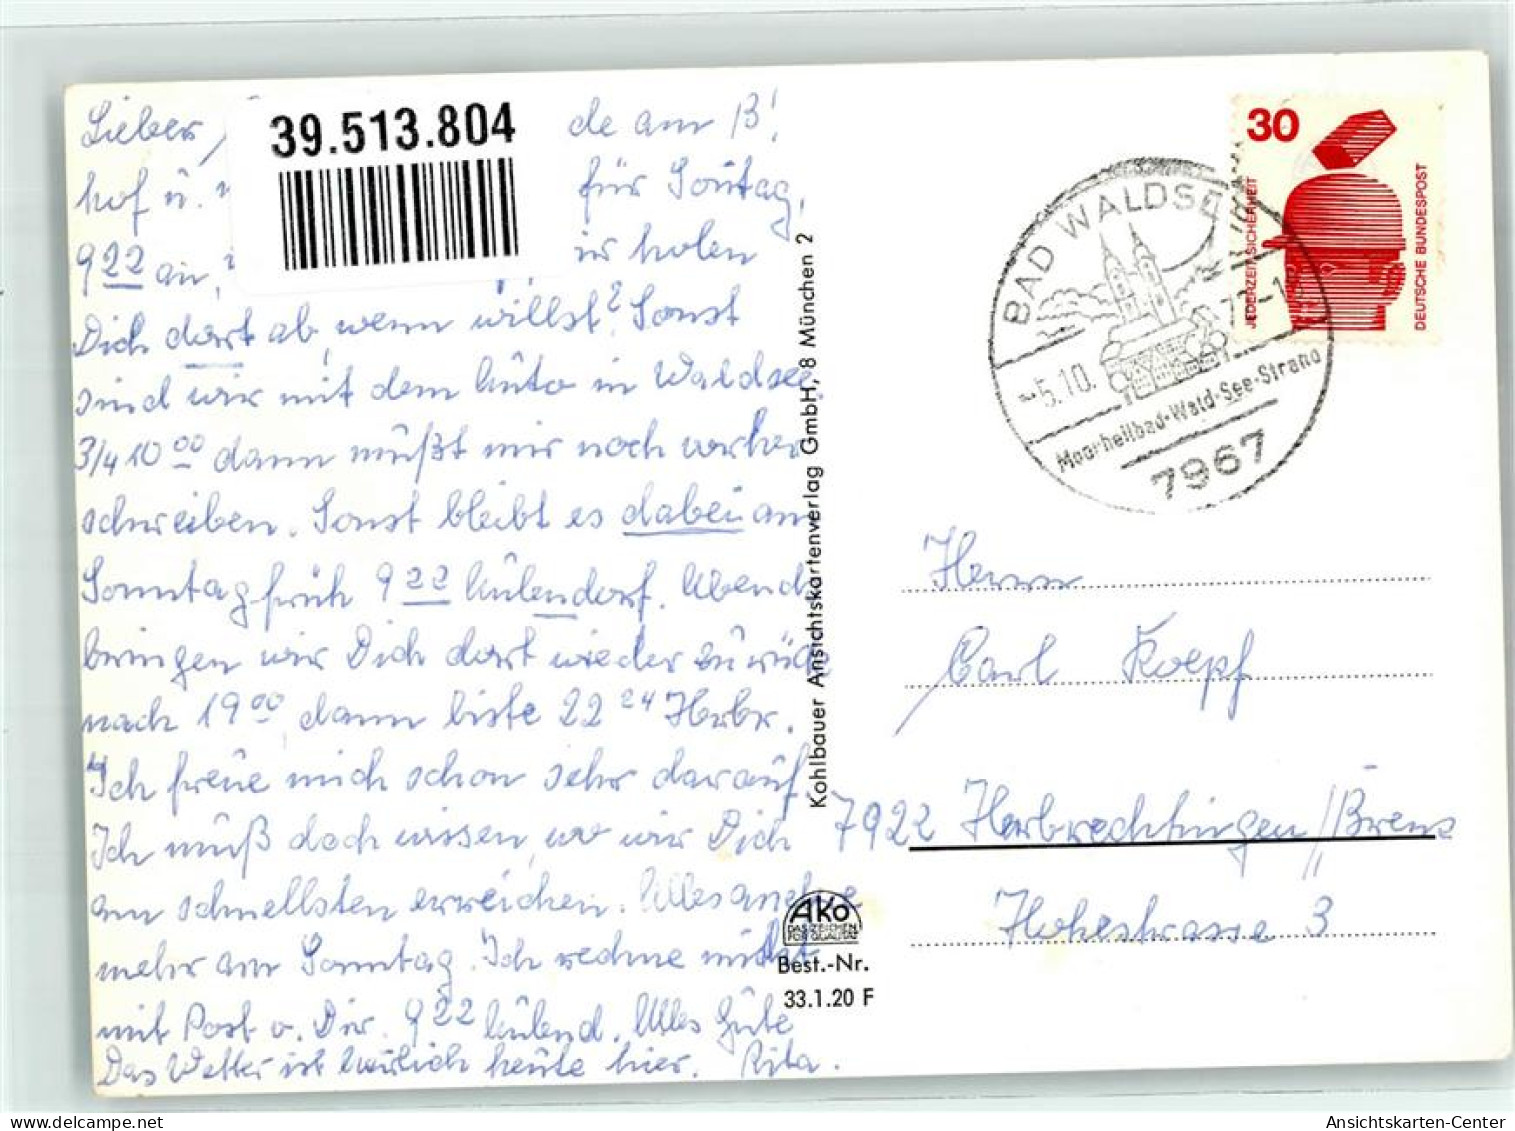 Lieber
39.513.804
de am B!
hof u.
für Sontag,
9 22 an,
wir holen
Dich dort ab, wenn willst? Sonst
sind wir mit dem Auto in Waldsee
3/4 10 00 dann müßt mir noch vorher
schreiben. Sonst bleibt es dabei am
Sonntag früh 9 22 Aulendorf. Abends
bringen wir Dich dort wieder zurück
nach 19 00, dann biste 22 24 Herbr.
Ich freue mich schon sehr darauf.
Ich muß doch wissen, wo wir Dich
am schnellsten erreichen. Alles andre
mehr am Sonntag. Ich rechne nicht
mit Post v. Dir. 9 22 Aulend. Alles Gute
Das Wetter ist herrlich heute hier. Rita.
Kohlbauer Ansichtskartenverlag GmbH, 8 München 2
AKo
DAS ZEICHEN
FÜR QUALITÄT
Best.-Nr.
33.1.20 F
30
JEDERZEIT SICHERHEIT
DEUTSCHE BUNDESPOST
BAD WALDSEE
-5.10.
Moorheilbad-Wald-See-Strand
7967
Herrn
Carl Koepf
7922 Herbrechtingen//Brenz
Hohestrasse 3
Ansichtskarten-Center